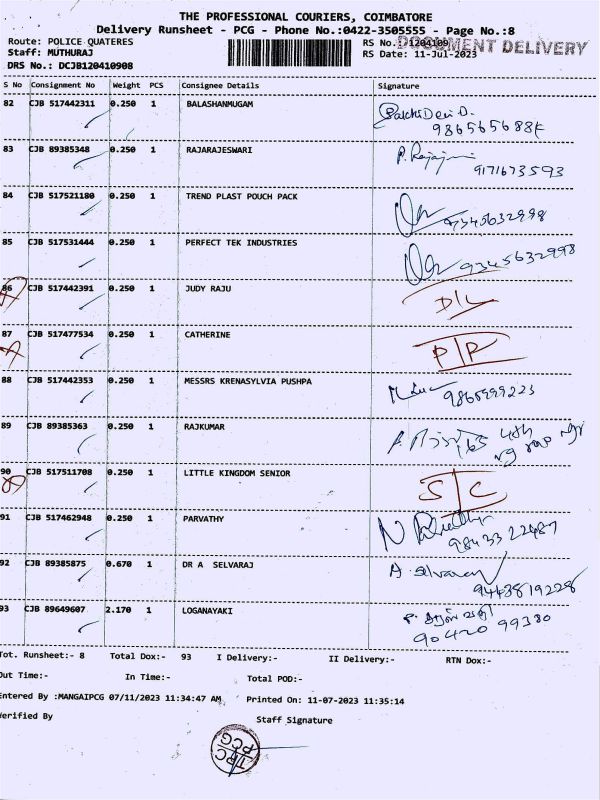 THE PROFESSIONAL COURIERS, COIMBATORE
Delivery Runsheet - PCG - Phone No.:0422-3505555 - Page No.:8
Route: POLICE QUATERES RS No.: 1204109 DOCUMENT DELIVERY
Staff: MUTHURAJ RS Date: 11-Jul-2023
DRS No.: DCJB120410908
S No Consignment No Weight PCS Consignee Details Signature
82 CJB 517442311 0.250 1 BALASHANMUGAM
83 CJB 89385348 0.250 1 RAJARAJESWARI
9171673593
84 CJB 517521180 0.250 1 TREND PLAST POUCH PACK
9345632998
85 CJB 517531444 0.250 1 PERFECT TEK INDUSTRIES
9345632998
86 CJB 517442391 0.250 1 JUDY RAJU
D/L
87 CJB 517477534 0.250 1 CATHERINE
P/R
88 CJB 517442353 0.250 1 MESSRS KRENASYLVIA PUSHPA
89 CJB 89385363 0.250 1 RAJKUMAR
90 CJB 517511708 0.250 1 LITTLE KINGDOM SENIOR
S/C
91 CJB 517462948 0.250 1 PARVATHY
9843322487
92 CJB 89385875 0.670 1 DR A SELVARAJ
A. Selvaraj
9443819228
93 CJB 89649607 2.170 1 LOGANAYAKI
90420 99380
Tot. Runsheet:- 8 Total Dox:- 93 I Delivery:- II Delivery:- RTN Dox:-
Out Time:- In Time:- Total POD:-
Entered By :MANGAIPCG 07/11/2023 11:34:47 AM Printed On: 11-07-2023 11:35:14
Verified By Staff Signature
TPC
PCG